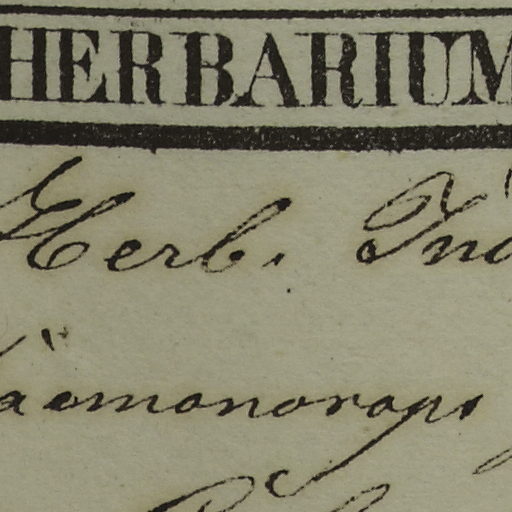 HERBARIUM
Herb. Ind
aemonorops